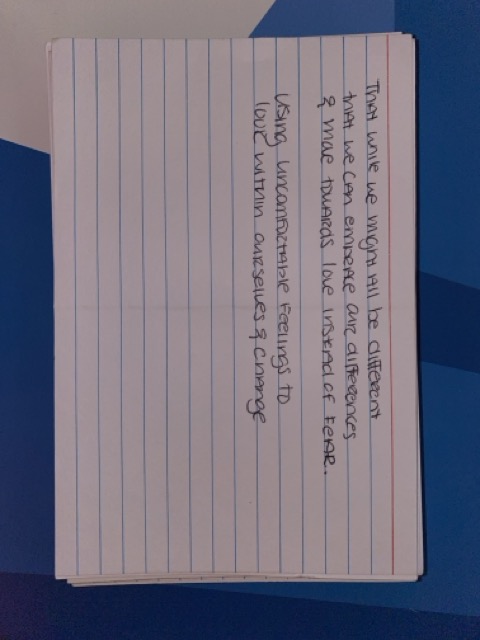 That while we might all be different
that we can embrace our differences
& move towards love instead of fear.
using uncomfortable feelings to
look within ourselves & change